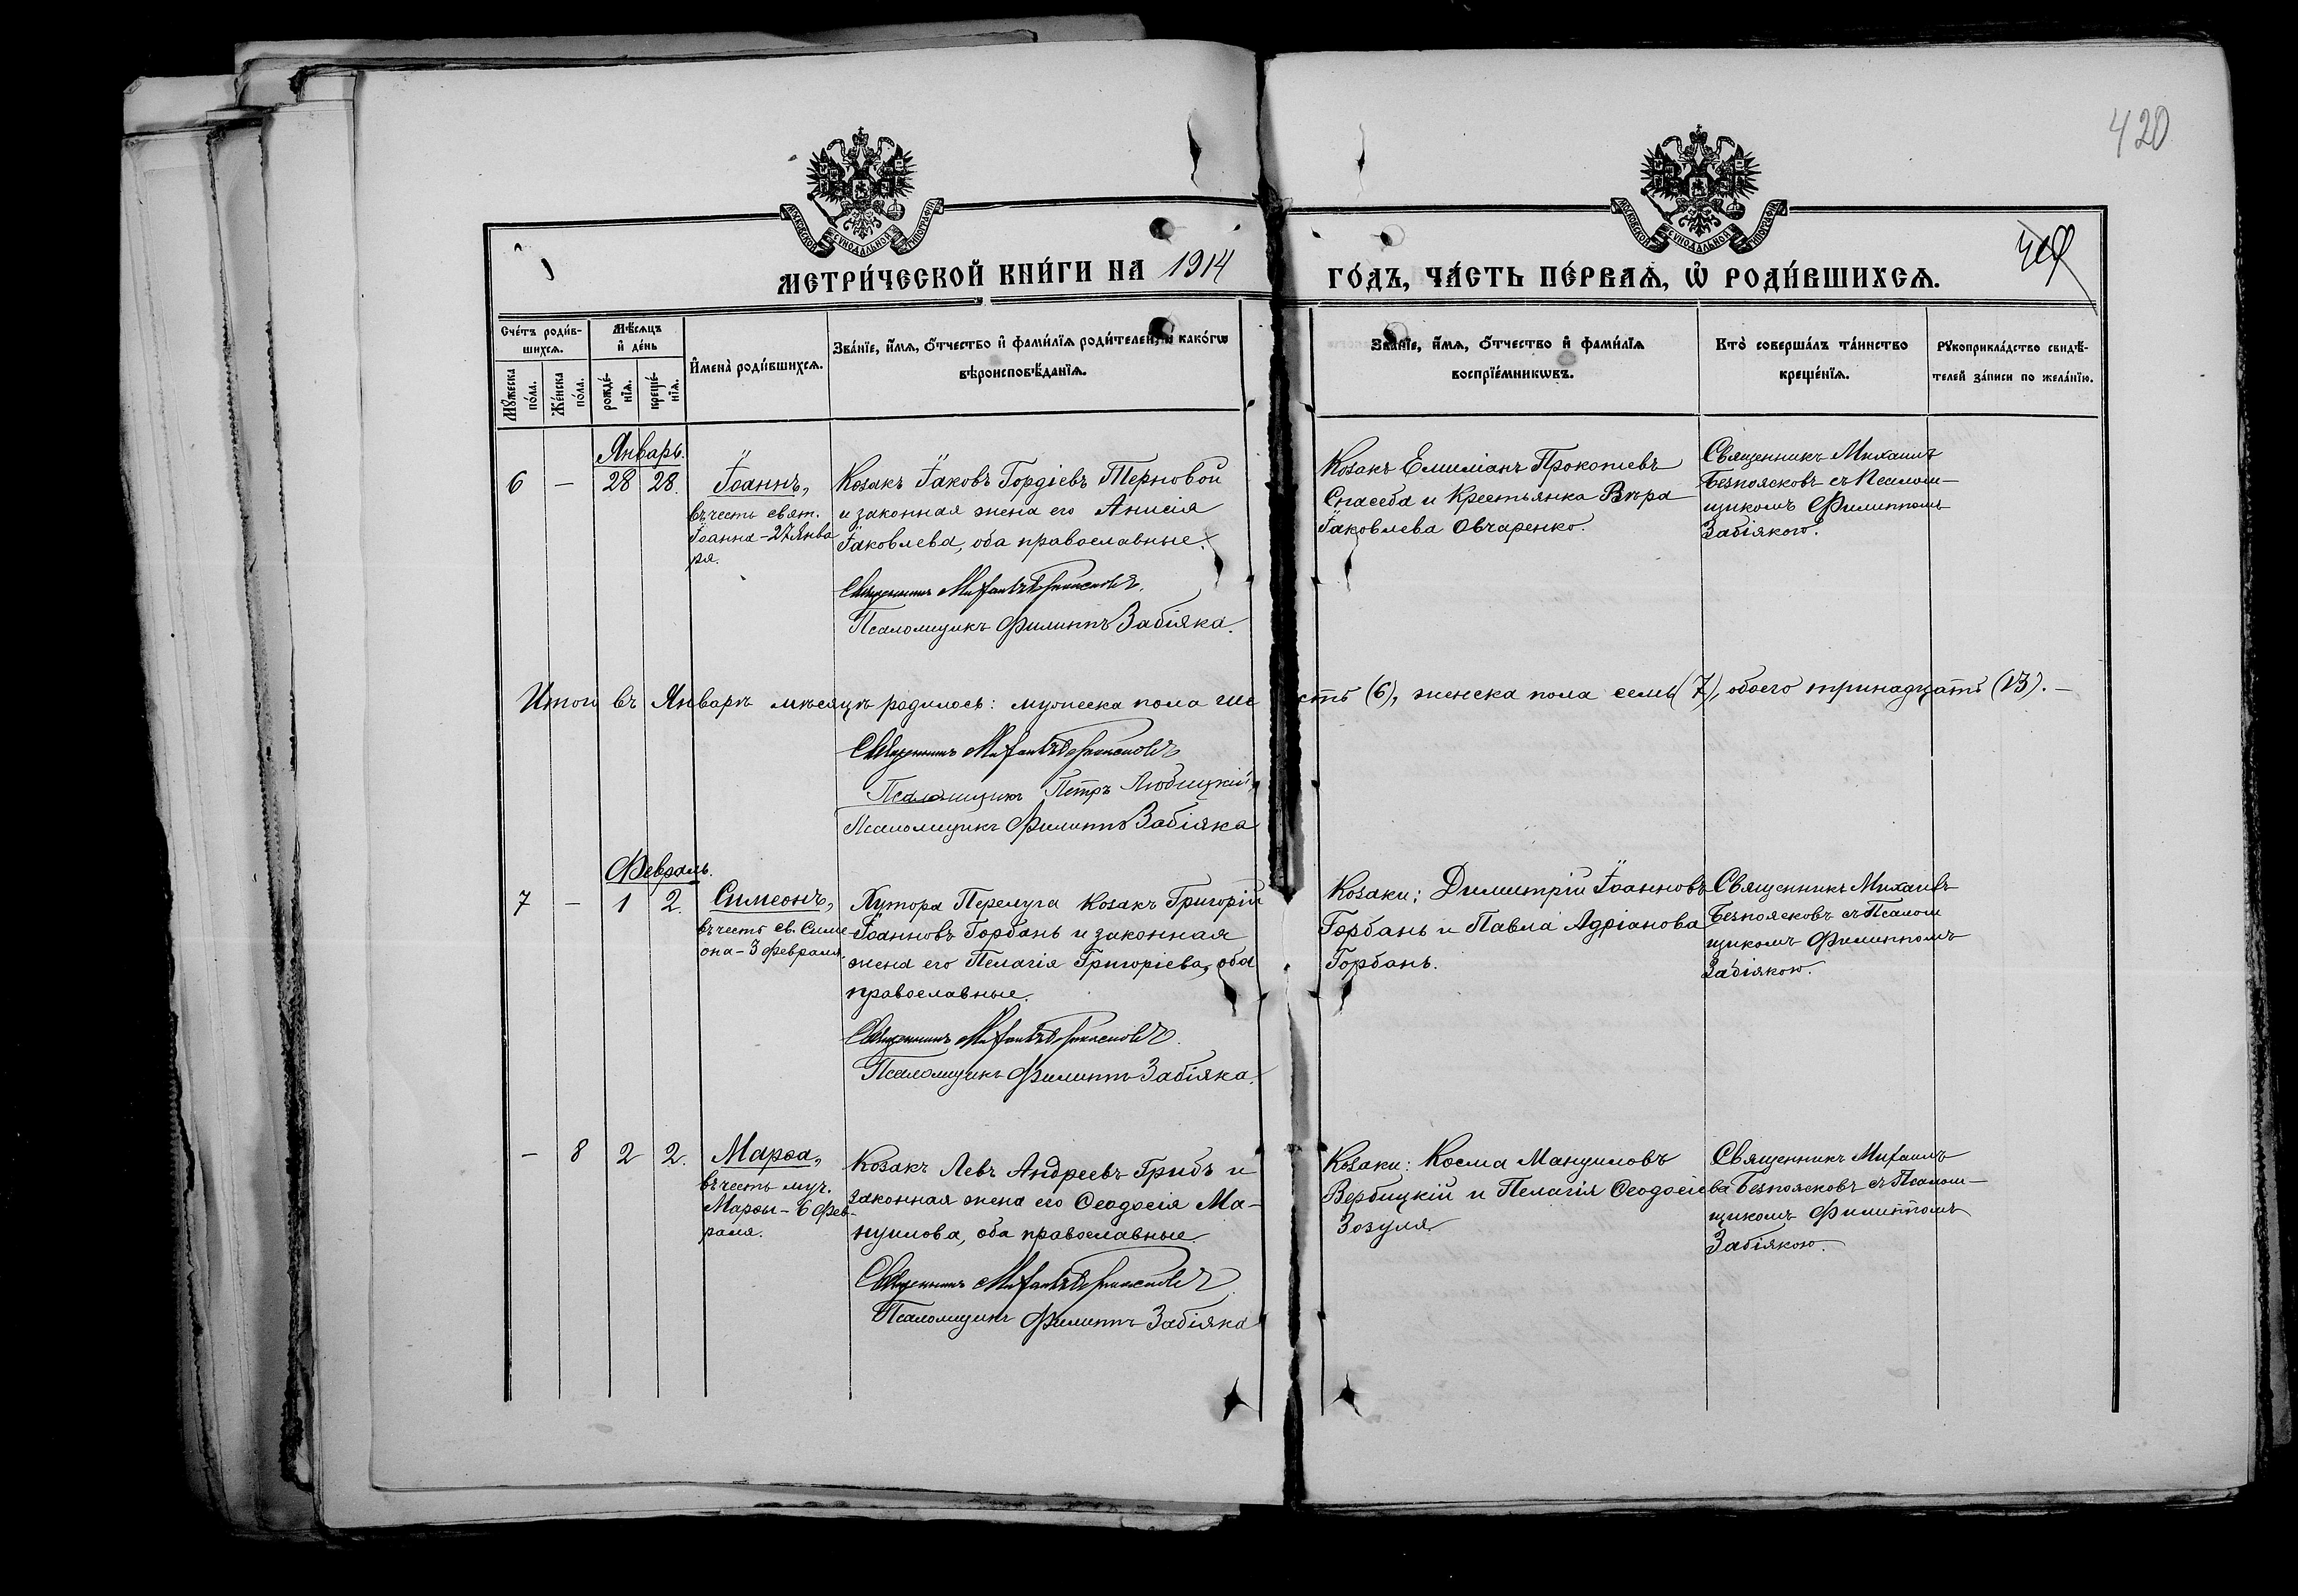 420
МОСКОВСКОЙ СУНОДАЛЬНОЙ ТИПОГРАФІИ
МОСКОВСКОЙ СУНОДАЛЬНОЙ ТИПОГРАФІИ
МЕТРИ́ЧЕСКОЙ КНИ́ГИ НА 1914
ГО́ДЪ, ЧА́СТЬ ПЕ́РВАѦ, Ѡ҆ РОДИ́ВШИХСѦ.
Сче́тъ роди́в-
шихсѧ.
Мꙋ́жеска по́ла.
Же́нска по́ла.
Мѣ́сѧцъ
и҆ де́нь
рожде́-
нїѧ.
креще́-
нїѧ.
И҆мена̀ роди́вшихсѧ.
Зва́нїе, и҆́мѧ, ѻ҆́тчество и҆ фами́лїѧ роди́телей, и҆ како́гѡ
вѣроисповѣ́данїѧ.
Зва́нїе, и҆́мѧ, ѻ҆́тчество и҆ фами́лїѧ
воспрїе́мникѡвъ.
Кто̀ соверша́лъ та́инство
креще́нїѧ.
Рꙋкоприкла́дство свидѣ́-
телей за́писи по жела́нїю.
Январь.
6 — 28 28.
Іоаннъ,
въ честь свят.
Іоанна – 27 Янва
ря.
Козакъ Іаковъ Гордіевъ Терновой
и законная жена его Анисія
Іаковлева, оба православные.
Священникъ Михаилъ Безпоясковъ.
Псаломщикъ Филиппъ Забіяка.
Козакъ Емиліанъ Прокопіевъ
Спасеба и Крестьянка Вѣра
Іаковлева Овчаренко.
Священникъ Михаилъ
Безпоясковъ съ Псалом-
щикомъ Филиппомъ
Забіякою.
Итого въ Январѣ мѣсяцѣ родилось: мужеска пола шесть (6), женска пола семь (7), обоего тринадцать (13). —
Священникъ Михаилъ Безпоясковъ
Псаломщикъ Петръ Любицкій
Псаломщикъ Филиппъ Забіяка
Февраль.
7 — 1 2.
Симеонъ,
въ честь св. Симе
она – 3 февраля.
Хутора Перелуга Козакъ Григорій
Іоанновъ Горбань и законная
жена его Пелагія Григоріева, оба
православные.
Священникъ Михаилъ Безпоясковъ.
Псаломщикъ Филиппъ Забіяка.
Козаки: Димитрій Іоанновъ
Горбань и Павла Адріанова
Горбань.
Священникъ Михаилъ
Безпоясковъ съ Псалом
щикомъ Филиппомъ
Забіякою.
— 8 2 2.
Марѳа,
въ честь муч.
Марѳы – 6 Фев-
раля.
Козакъ Левъ Андреевъ Грибъ и
законная жена его Ѳеодосія Ма-
нуилова, оба православные.
Священникъ Михаилъ Безпоясковъ.
Псаломщикъ Филиппъ Забіяка
Козаки: Косма Мануиловъ
Вербицкій и Пелагія Ѳеодосіева
Зозуля
Священникъ Михаилъ
Безпоясковъ съ Псалом-
щикомъ Филиппомъ
Забіякою.